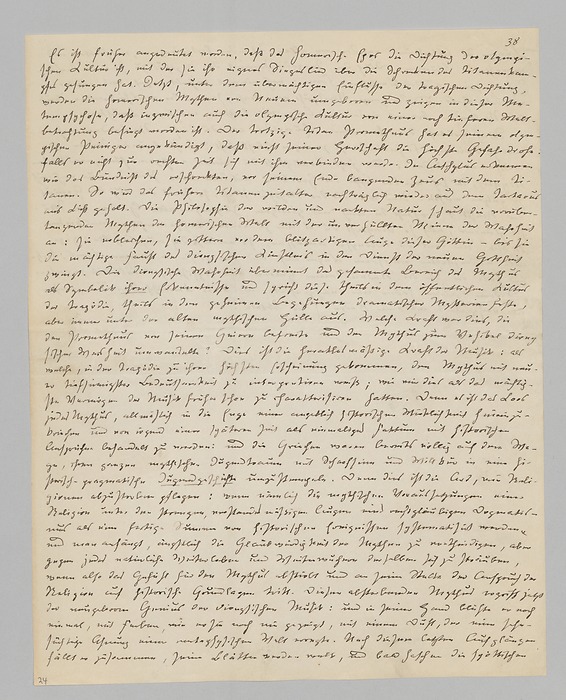 38
Es ist früher angedeutet worden, daß das homerische Epos die Dichtung der olympi-
schen Kultur ist, mit der sie ihr eignes Siegeslied über die Schrecken des Titanenkam-
pfes gesungen hat. Jetzt, unter dem übermächtigen Einflusse der tragischen Dichtung,
werden die homerischen Mythen von Neuem umgeboren und zeigen in dieser Me-
tempsychose, daß inzwischen auch die olympische Kultur von einer noch tieferen Welt-
betrachtung besiegt worden ist. Der trotzige Titan Prometheus hat es seinem olym-
pischen Peiniger angekündigt, daß einst seiner Herrschaft die höchste Gefahr drohe,
falls er nicht zur rechten Zeit sich mit ihm verbinden werde. In Aeschylus erkennen
wir das Bündniß des erschreckten, vor seinem Ende bangenden Zeus mit dem Ti-
tanen. So wird das frühere Titanenzeitalter nachträglich wieder aus dem Tartarus
ans Licht geholt. Die Philosophie der wilden und nackten Natur schaut die vorüber-
tanzenden Mythen der homerischen Welt mit der unverhüllten Miene der Wahrheit
an: sie erbleichen, sie zittern vor dem blitzartigen Auge dieser Göttin – bis sie
die mächtige Faust des dionysischen Künstlers in den Dienst der neuen Gottheit
zwingt. Die dionysische Wahrheit übernimmt das gesammte Bereich des Mythus
als Symbolik ihrer Erkenntnisse und spricht diese theils in dem öffentlichen Kultus
der Tragödie, theils in den geheimen Begehungen dramatischer Mysterienfeste,
aber immer unter der alten mythischen Hülle aus. Welche Kraft war dies, die
den Prometheus von seinen Geiern befreite und den Mythus zum Vehikel diony
sischer Weisheit umwandelte? Dies ist die heraklesmäßige Kraft der Musik: als
welche, in der Tragödie zu ihrer höchsten Erscheinung gekommen, den Mythus mit neu-
er tiefsinnigster Bedeutsamkeit zu interpretiren weiß; wie wir dies als das mächtig-
ste Vermögen der Musik früher schon zu charakterisiren hatten. Denn es ist das Loos
jedes Mythus, allmählich in die Enge einer angeblich historischen Wirklichkeit hineinzu-
kriechen und von irgend einer späteren Zeit als einmaliges Faktum mit historischen
Ansprüchen behandelt zu werden: und die Griechen waren bereits völlig auf dem We-
ge, ihren ganzen mythischen Jugendtraum mit Scharfsinn und Willkür in eine hi-
storisch-pragmatische Jugendgeschichte umzustempeln. Denn dies ist die Art, wie Reli-
gionen abzusterben pflegen: wenn nämlich die mythischen Voraussetzungen einer
Religion unter den strengen, verstandesmäßigen Augen eines rechtgläubigen Dogmatis-
mus als eine fertige Summe von historischen Ereignissen systematisirt werden
und man anfängt, ängstlich die Glaubwürdigkeit der Mythen zu vertheidigen, aber
gegen jedes natürliche Weiterleben und Weiterwuchern derselben sich zu sträuben,
wenn also das Gefühl für den Mythus abstirbt und an seine Stelle der Anspruch der
Religion auf historische Grundlagen tritt. Diesen absterbenden Mythus ergriff jetzt
der neugeborne Genius der dionysischen Musik: und in seiner Hand blühte er noch
einmal, mit Farben, wie er sie noch nie gezeigt, mit einem Duft, der eine sehn-
süchtige Ahnung einer metaphysischen Welt erregte. Nach diesem letzten Aufglänzen
fällt er zusammen, seine Blätter werden welk, und bald haschen die spöttischen
24